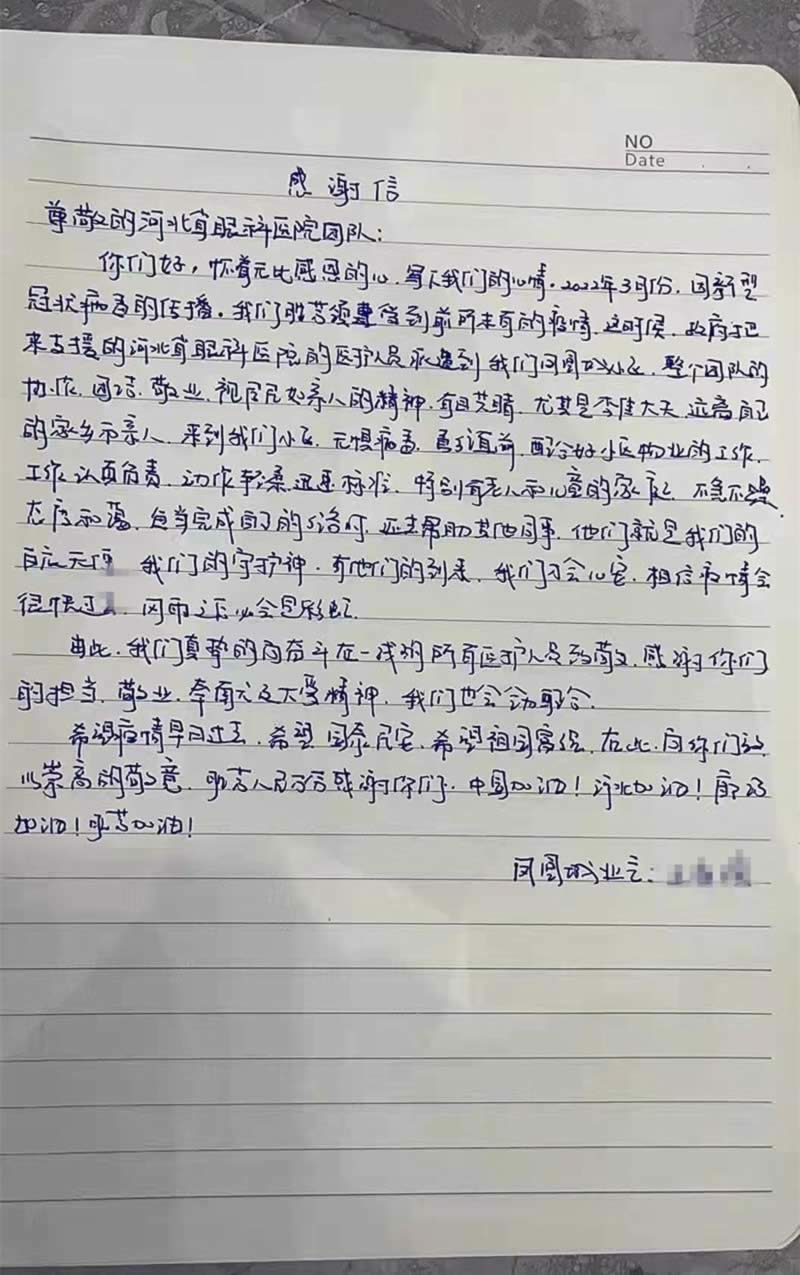 NO
Date
感谢信
尊敬的河北省眼科医院团队:
你们好,怀着无比感恩的心,写下我们的心情。2022年3月份,因新型
冠状病毒的传播。我们胜芳镇遭受到前所未有的疫情,这时候,政府把
来支援的河北省眼科医院的医护人员派遣到我们凤凰城小区,整个团队的
协作、团结、敬业、视居民如亲人的精神,有目共睹,尤其是李佳大夫,远离自己
的家乡和亲人,来到我们小区,无惧病毒,勇于直前,配合好小区物业的工作,
工作认真负责,动作轻柔迅速标准,特别有老人和儿童的家庭,不急不躁,
态度和蔼,每当完成自己的工作时,还去帮助其他同事,他们就是我们的
白衣天使 我们的守护神,有他们的到来,我们才会心安,相信疫情会
很快过 风雨之后必会是彩虹。
由此,我们真挚的向奋斗在一线的所有医护人员致敬,感谢你们
的担当、敬业、奉献及大爱精神,我们也会全力配合。
希望疫情早日过去,希望国泰民安,希望祖国富强,在此,向你们致
以崇高的敬意,胜芳人民感谢你们,中国加油!河北加油!廊坊
加油!胜芳加油!
凤凰城业主: